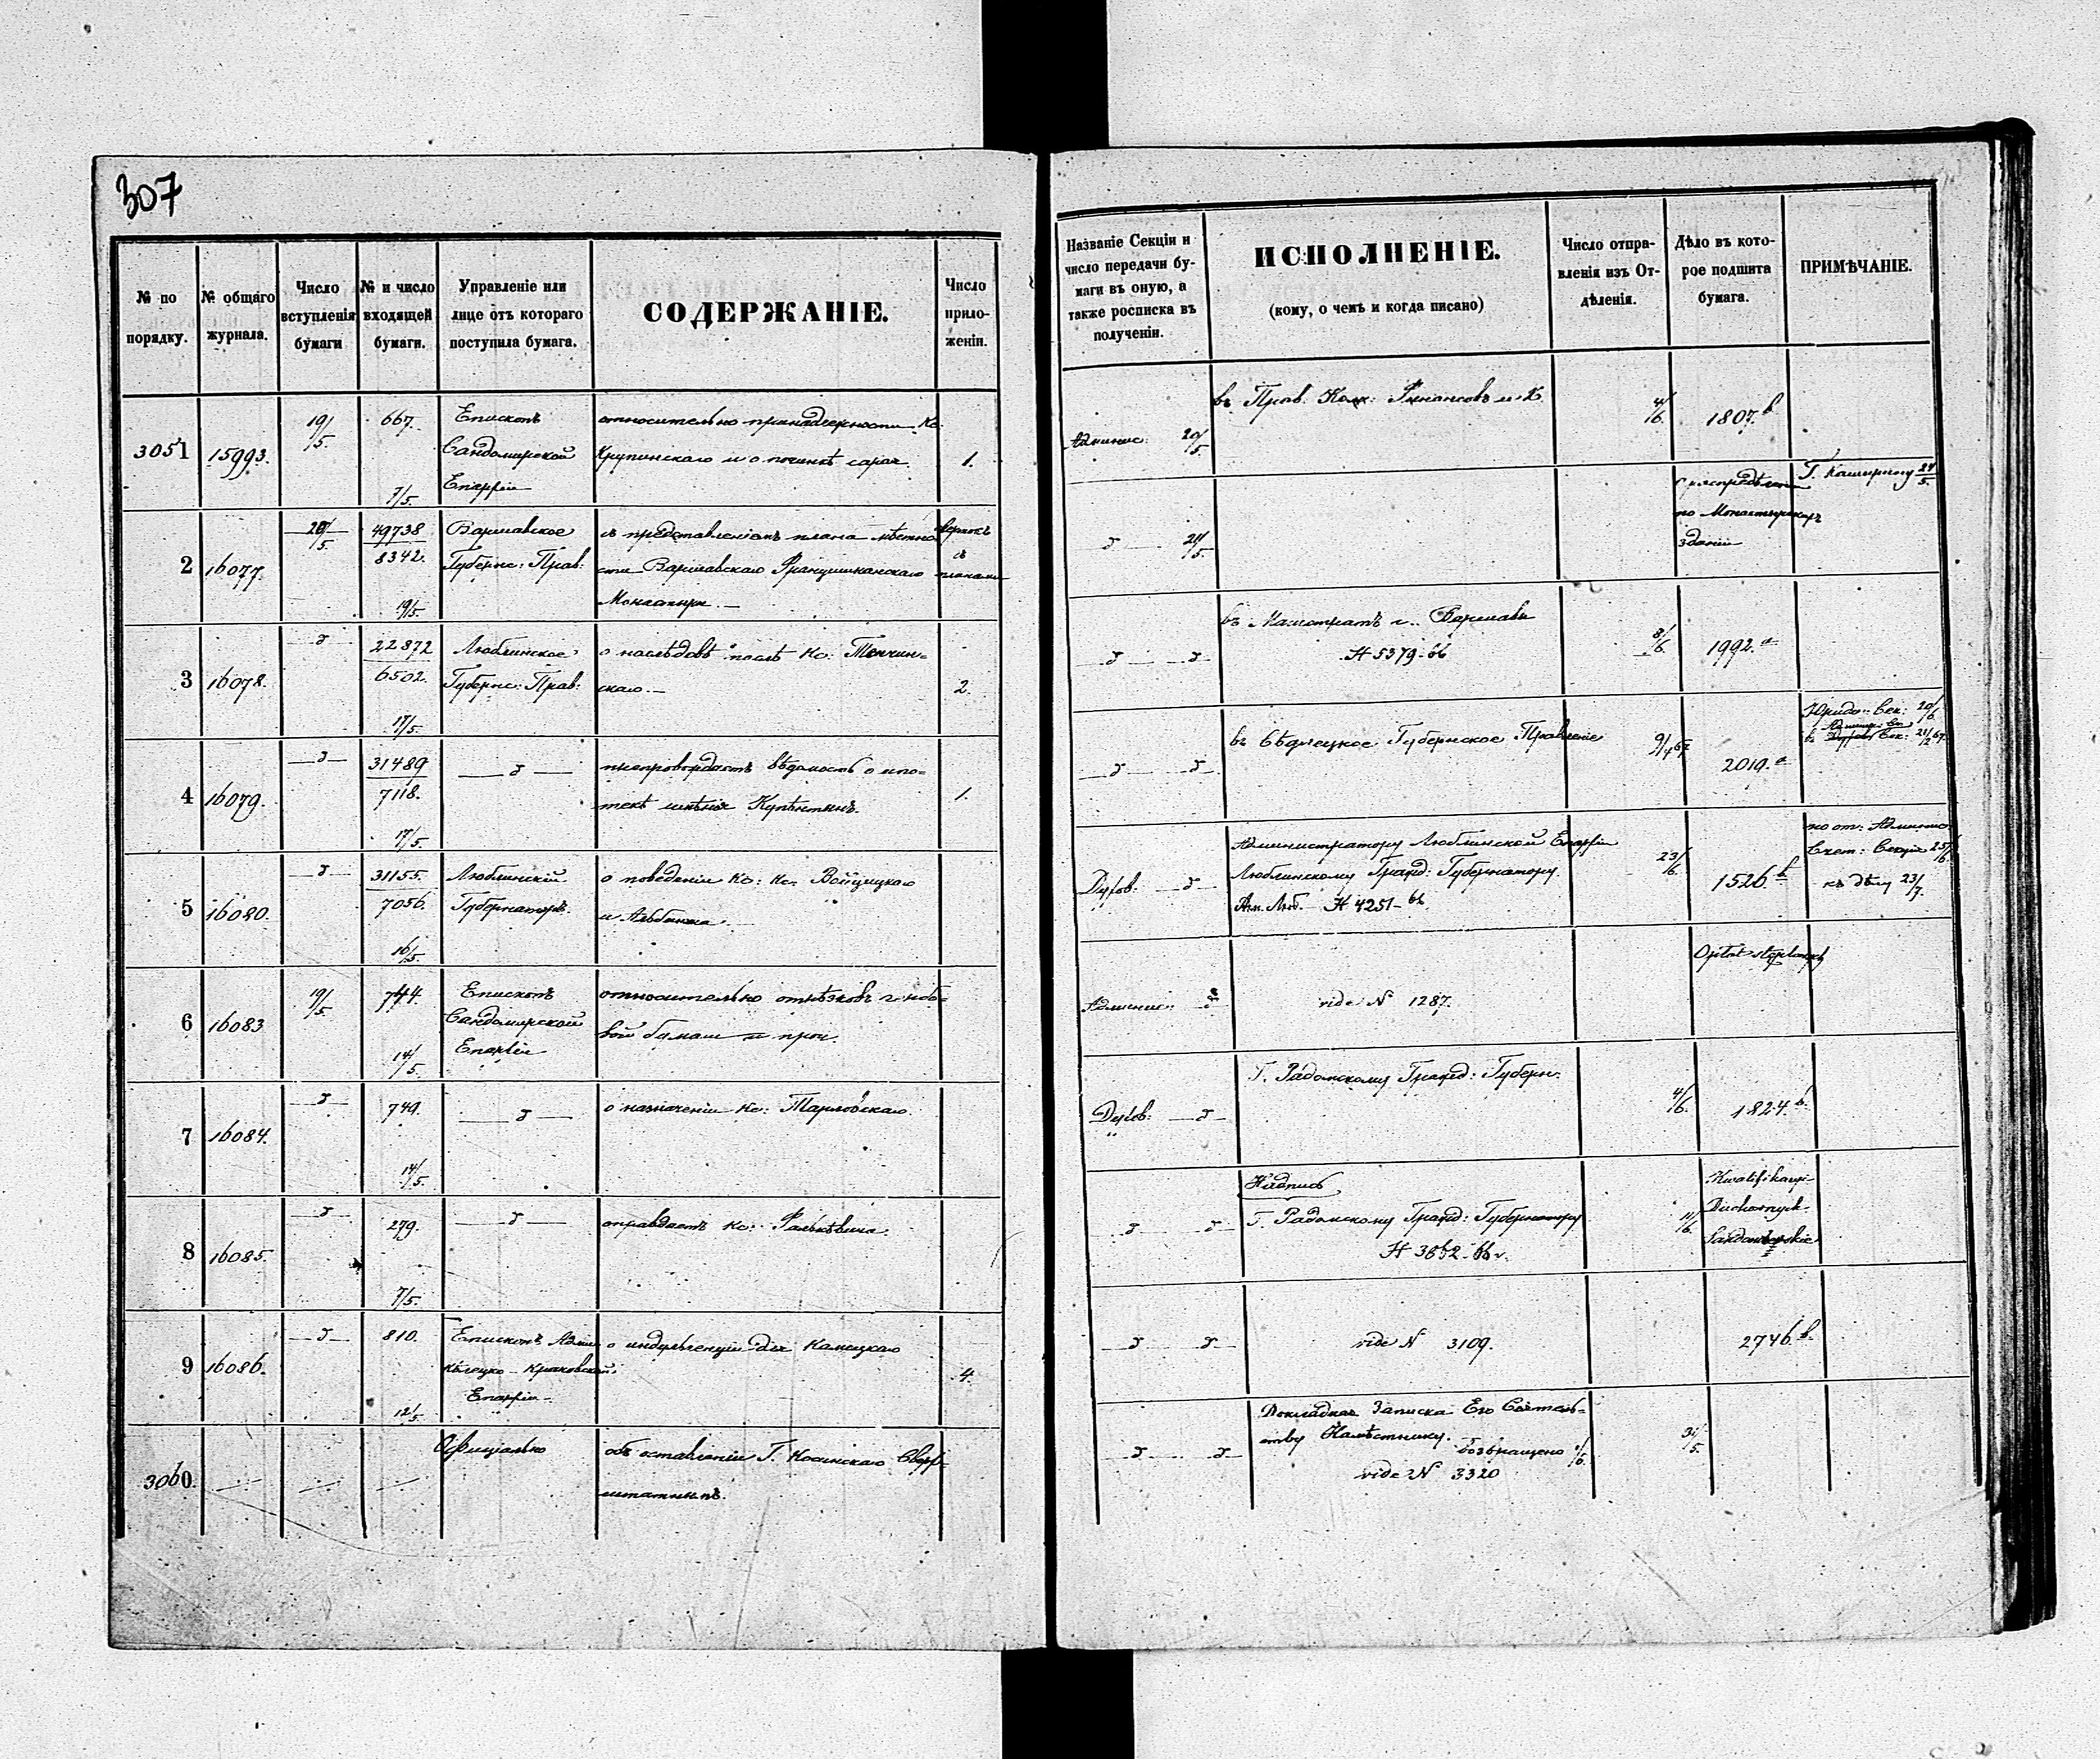 307
№ по порядку.
№ общаго журнала.
Число вступленія бумаги
№ и число входящей бумаги.
Управленіе или лице отъ котораго поступила бумага.
СОДЕРЖАНІЕ.
Число прило-женін.
Названіе Секціи и число передачи бу-маги въ оную, а также росписка въ полученіи.
ИСПОЛНЕНІЕ.
(кому, о чемъ и когда писано)
Число отпра-вленія изъ От-дѣленія.
Дѣло въ кото-рое подшита бумага.
ПРИМѢЧАНІЕ.
3051 15993. 19/5. 667. 7/5.
Епископъ
Сандомирской
Епархіи
относительно принадлежности Кс.
Крупинскаго и о починкѣ сарая
1.
Админис: 20/5.
въ Прав. Ком: Финансовъ и К.
4/6.
1807.b
2 16077. 20/5. 49738 8342. 19/5.
Варшавское
Губернс: Прав:
съ представленіемъ плана мѣстно
сти Варшавскаго Францишканскаго
Монастыря. —
съ
планами
д 21/5.
о распредѣленіи
по Монастырскихъ
зданій
Г. Каширину 24/5.
3 16078. д 22872 6502. 17/5.
Люблинское
Губернс: Прав:
о наслѣдовъ послѣ Кс: Тенчин=
скаго. —
2.
д д
въ Магистратъ г. Варшавы
N 5379-66
8/6.
1992.a
4 16079. д 31489 7118. 17/5.
д
препровождаетъ вѣдомость о ипо=
текѣ имѣнія
1.
д д
въ Сѣдлецкое Губернское Правленіе
9/4 67
2019.a
Юридич: Сек: 20/6
5 16080. д 31155. 7056. 16/5.
Люблинскій
Губернаторъ.
о поведеніи Кс: Кс: Войцицкаго
и
Духов: д
Администратору Люблинской Епархіи
Люблинскому Гражд: Губернатору
N 4251-66
23/6.
1526.b
по от: Админис:
Счет: Секціи 25/6.
къ дѣлу 23/7.
6 16083 19/5. 744. 14/5.
Епископъ
Сандомирской
Епархіи
относительно отрѣзковъ гербо=
вой бумаги и проч.
Админис: д
vide N 1287.
7 16084. д 749. 14/5.
д
о назначеніи Кс: Тарловскаго.
Духов: д
Г. Радомскому Гражд: Губерн.
4/6.
1824.b.
8 16085. д 279. 7/5.
д
оправдаетъ Кс:
д д
Надпись
Г. Радомскому Гражд: Губернатору
N 3652-66 г.
11/6.
Kwalifikacyi
Duchownych
Sandomierskie
9 16086. д 810. 12/5.
Епископъ Админ
Кѣлецко-Краковской
Епархіи
о индульгенціи для Камецкаго
4.
д д
vide N 3109.
2746.b.
3060.
Офиціально
объ оставленіи Г. Косинскаго Сверх=
штатнымъ.
д д
Докладная Записка Его Сіятель=
ству Намѣстнику.
возвращено 1/6.
vide N 3320
31/5.